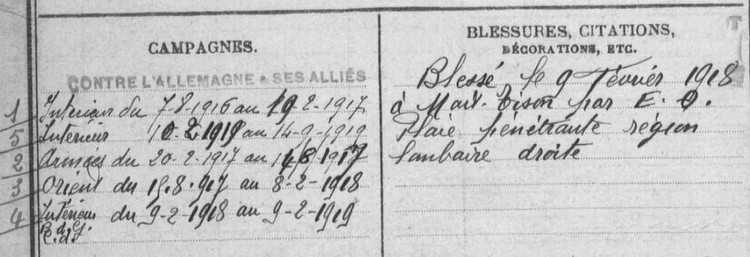 CAMPAGNES.
CONTRE L'ALLEMAGNE & SES ALLIÉS
1 Intérieur du 7-8-1916 au 19-2-1917
5 Intérieur 10-2-1919 au 14-9-1919
2 Armées du 20-2-1917 au 14-8-1917
3 Orient du 15.8.917 au 8-2-1918
4 Intérieur du 9-2-1918 au 9-2-1919
BLESSURES, CITATIONS,
DÉCORATIONS, ETC.
Blessé le 9 Février 1918
à par E. O.
Plaie pénétrante région
lombaire droite